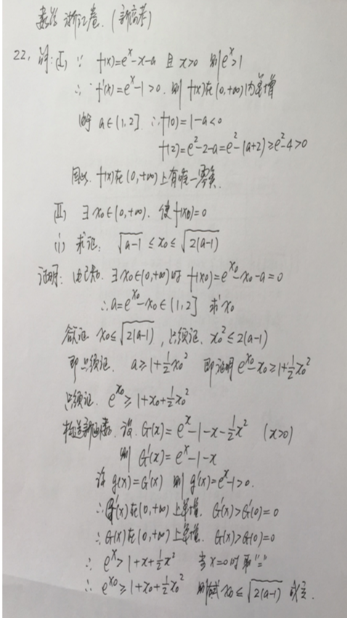 数学 浙江卷. (新高考)
22. 解: (Ⅰ) ∵ f(x)=e^x-x-a 且 x>0 则 e^x>1
∴ f'(x)=e^x-1>0. 则 f(x)在(0,+∞)内单增
a∈(1,2] ∴ f(0)=1-a<0
f(2)=e^2-2-a=e^2-(a+2)≥e^2-4>0
因此 f(x)在(0,+∞)上有唯一零点.
(Ⅱ) ∃ x₀∈(0,+∞). 使 f(x₀)=0
(i) 求证: √(a-1) ≤x₀≤ √(2(a-1))
证明: 由已知. ∃ x₀∈(0,+∞)时 f(x₀)=e^x₀-x₀-a=0
∴ a=e^x₀-x₀∈(1,2] 求 x₀
欲证 x₀≤√(2(a-1)), 只须证. x₀²≤2(a-1)
即只须证. a≥1+½x₀² 即证明 e^x₀-x₀≥1+½x₀²
只须证. e^x₀≥1+x₀+½x₀²
构造新函数. 设 G(x)=e^x-1-x-½x² (x>0)
则 G'(x)=e^x-1-x
设 g(x)=G'(x) 则 g'(x)=e^x-1>0.
∴ G'(x)在(0,+∞)上单增. G'(x)>G'(0)=0
∴ G(x)在(0,+∞)上单增. G(x)>G(0)=0
∴ e^x>1+x+½x² 当 x=0时 取"="
∴ e^x₀≥1+x₀+½x₀² 则 x₀≤√(2(a-1)) 成立.